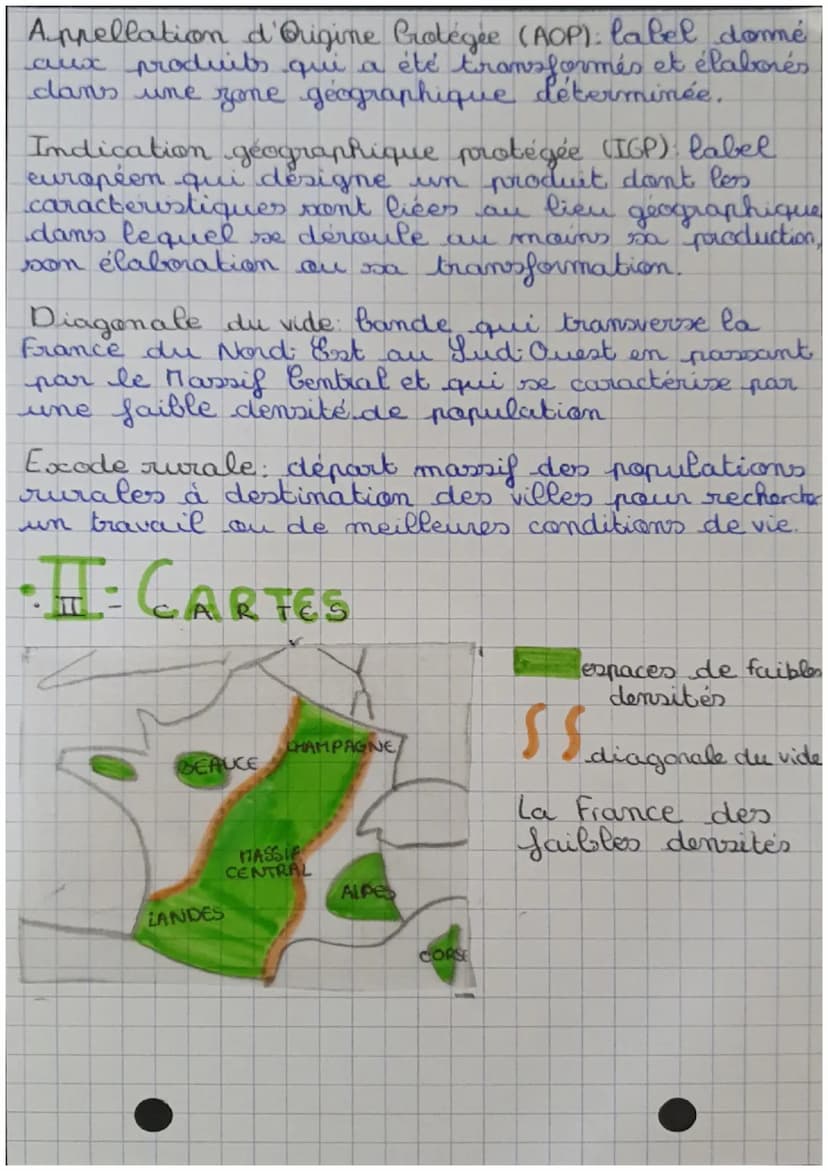 Appellation d'Origine Protégée (AOP): label donné
aux produits qui a été transformés et élaborés
dans une zone géographique déterminée.
Indication géographique protégée (IGP): label
européen qui désigne un produit dont les
caractéristiques sont liées au lieu géographique
dans lequel se déroule au moins sa production,
son élaboration ou sa transformation.
Diagonale du vide: bande qui transverse la
France du Nord-Est au Sud-Ouest en passant
par le Massif Central et qui se caractérise par
une faible densité de population
Exode rurale: départ massif des populations
rurales à destination des villes pour rechercher
un travail ou de meilleures conditions de vie.
II = CARTES
espaces de faibles
densités
diagonale du vide
La France des
faibles densités
CHAMPAGNE
BEAUCE
MASSIF
CENTRAL
ALPES
LANDES
CORSE